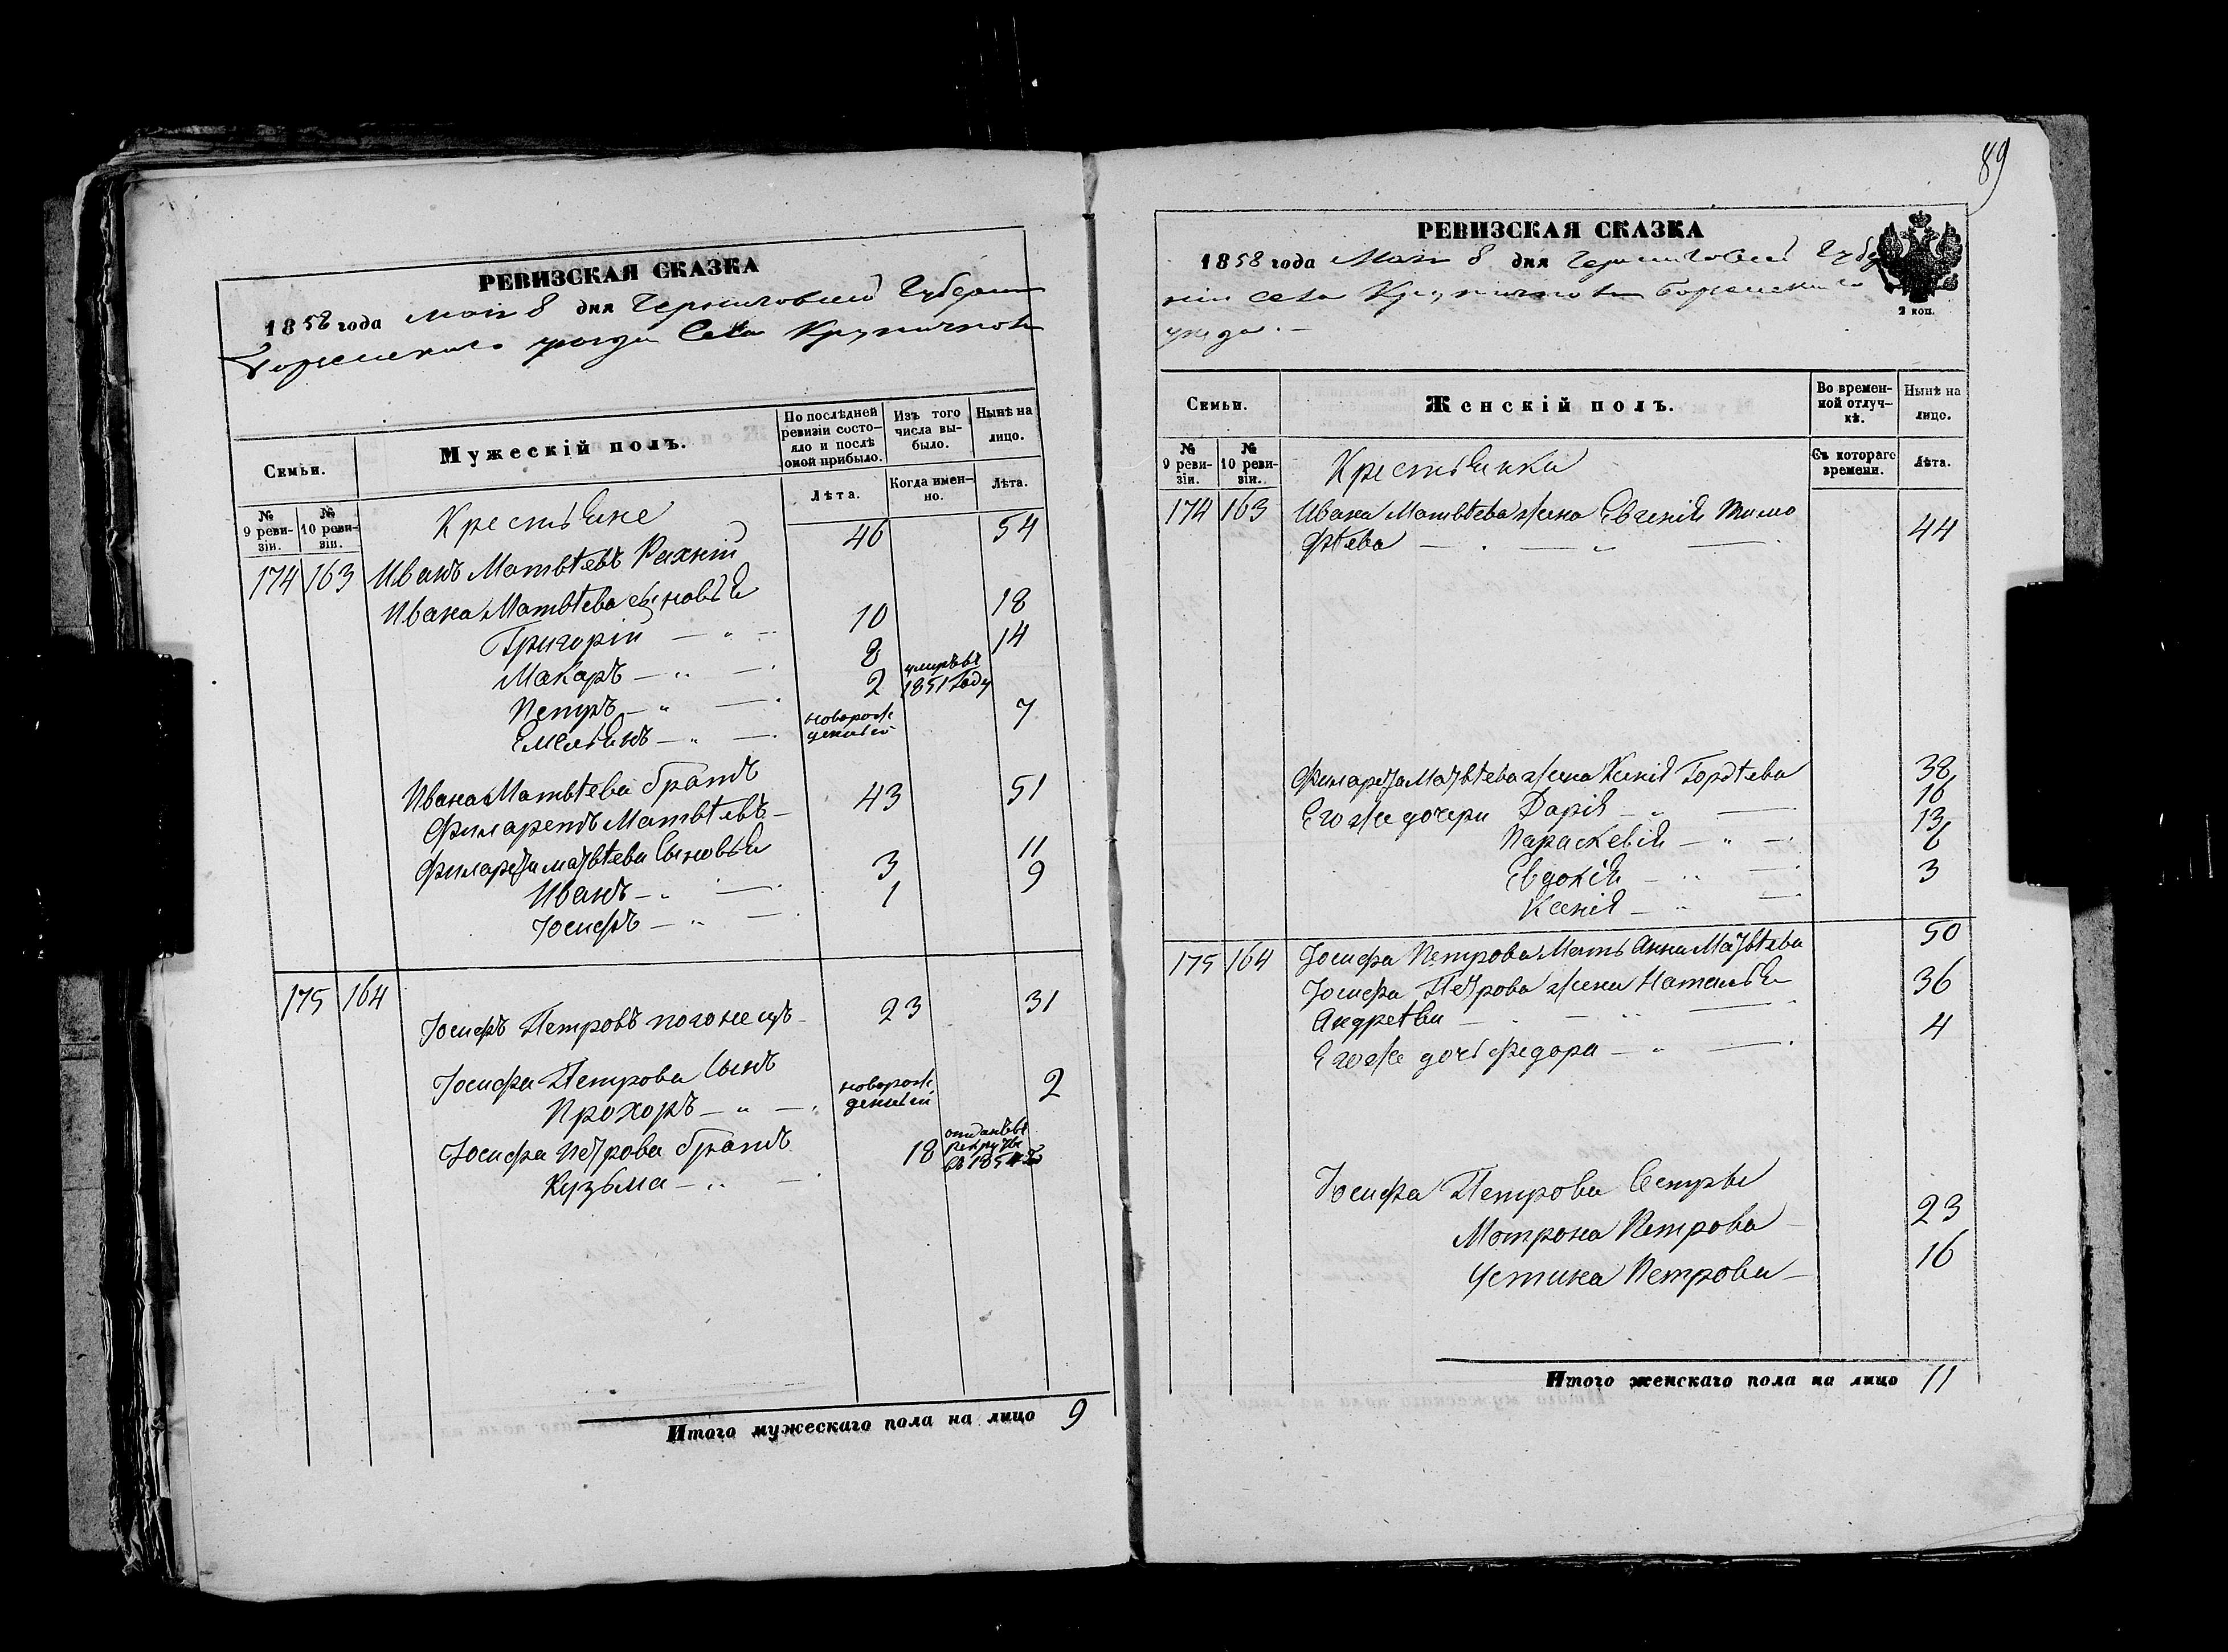 РЕВИЗСКАЯ СКАЗКА
1858 года Мая 8 дня Черниговской Губернии
Борзенского уезда Села Крупичполя
Семьи.
Мужескій полъ.
По послѣдней ревизіи состояло и послѣ оной прибыло.
Изъ того числа выбыло.
Нынѣ на лицо.
№ 9 ревизіи.
№ 10 ревизіи.
Лѣта.
Когда именно.
Лѣта.
Крестьяне
174 163 Иванъ Матвѣевъ Рахній 46 54
Ивана Матвѣева сыновья
Григорій — „ — 10 18
Макаръ — „ — 8 14
Петръ — „ — 2 умръ въ 1851 году
Емельянъ — „ — новорож
денный 7
Ивана Матвѣева братъ
Филаретъ Матвѣевъ — 43 51
Филарета Матвѣева Сыновья
Иванъ — „ — 3 11
Іосифъ — „ — 1 9
175 164
Іосифъ Петровъ 23 31
Іосифа Петрова Сынъ
Прохоръ — „ — новорож
денный 2
Іосифа Петрова братъ
Кузьма — „ — 18 отданъ въ
рекруты
въ 1854 г
Итого мужескаго пола на лицо 9
89
РЕВИЗСКАЯ СКАЗКА
2 коп.
1858 года Мая 8 дня Черниговской Губер
ніи села Крупичполя Борзенскаго
уезда. —
Семьи.
Женскій полъ.
Во временной отлучкѣ.
Нынѣ на лицо.
№ 9 ревизіи.
№ 10 ревизіи.
Съ котораго времени.
Лѣта.
Крестьянки
174 163 Ивана Матвѣева жена Евгенія Тимо
фѣева — „ — 44
Филарета Матвѣева жена Ксенія Гордѣева 38
Его же дочери Дарія — „ — 16
Параскевія — „ — 13
Евдокія — „ — 6
Ксенія — „ — 3
175 164 Іосифа Петрова Мать Анна Матвѣева 50
Іосифа Петрова жена Наталья
Андреѣва — „ — 36
Его же дочь Федора — „ — 4
Іосифа Петрова Сестры
Мотрона Петрова — 23
Устина Петрова — 16
Итого женскаго пола на лицо 11